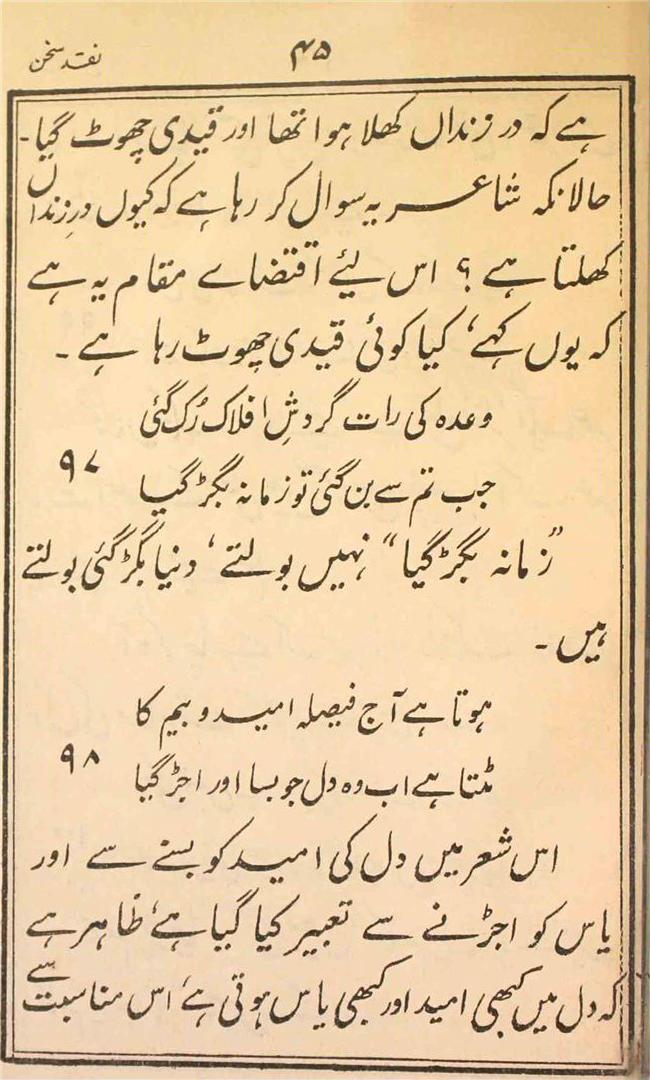 نقد سخن
۴۵
ہے کہ در زنداں کھلا ہوا تھا اور قیدی چھوٹ گیا۔
حالانکہ شاعر یہ سوال کر رہا ہے کہ کیوں درِ زنداں
کھلتا ہے ؟ اس لیٔے اقتضاے مقام یہ ہے
کہ یوں کہے، کیا کوئی قیدی چھوٹ رہا ہے ۔
وعدہ کی رات گردشِ افلاک رُک گئی
جب تم سے بن گئی تو زمانہ بگڑ گیا ۹۷
”زمانہ بگڑ گیا“ نہیں بولتے، دنیا بگڑ گئی بولتے
ہیں ۔
ہوتا ہے آج فیصلہ امید و بیم کا
مٹتا ہے اب وہ دل جو بسا اور اجڑ گیا ۹۸
اس شعر میں دل کی امید کو بسنے سے اور
یاس کو اجڑنے سے تعبیر کیا گیا ہے، ظاہر ہے
کہ دل میں کبھی امید اور کبھی یاس ہوتی ہے، اس مناسبت سے